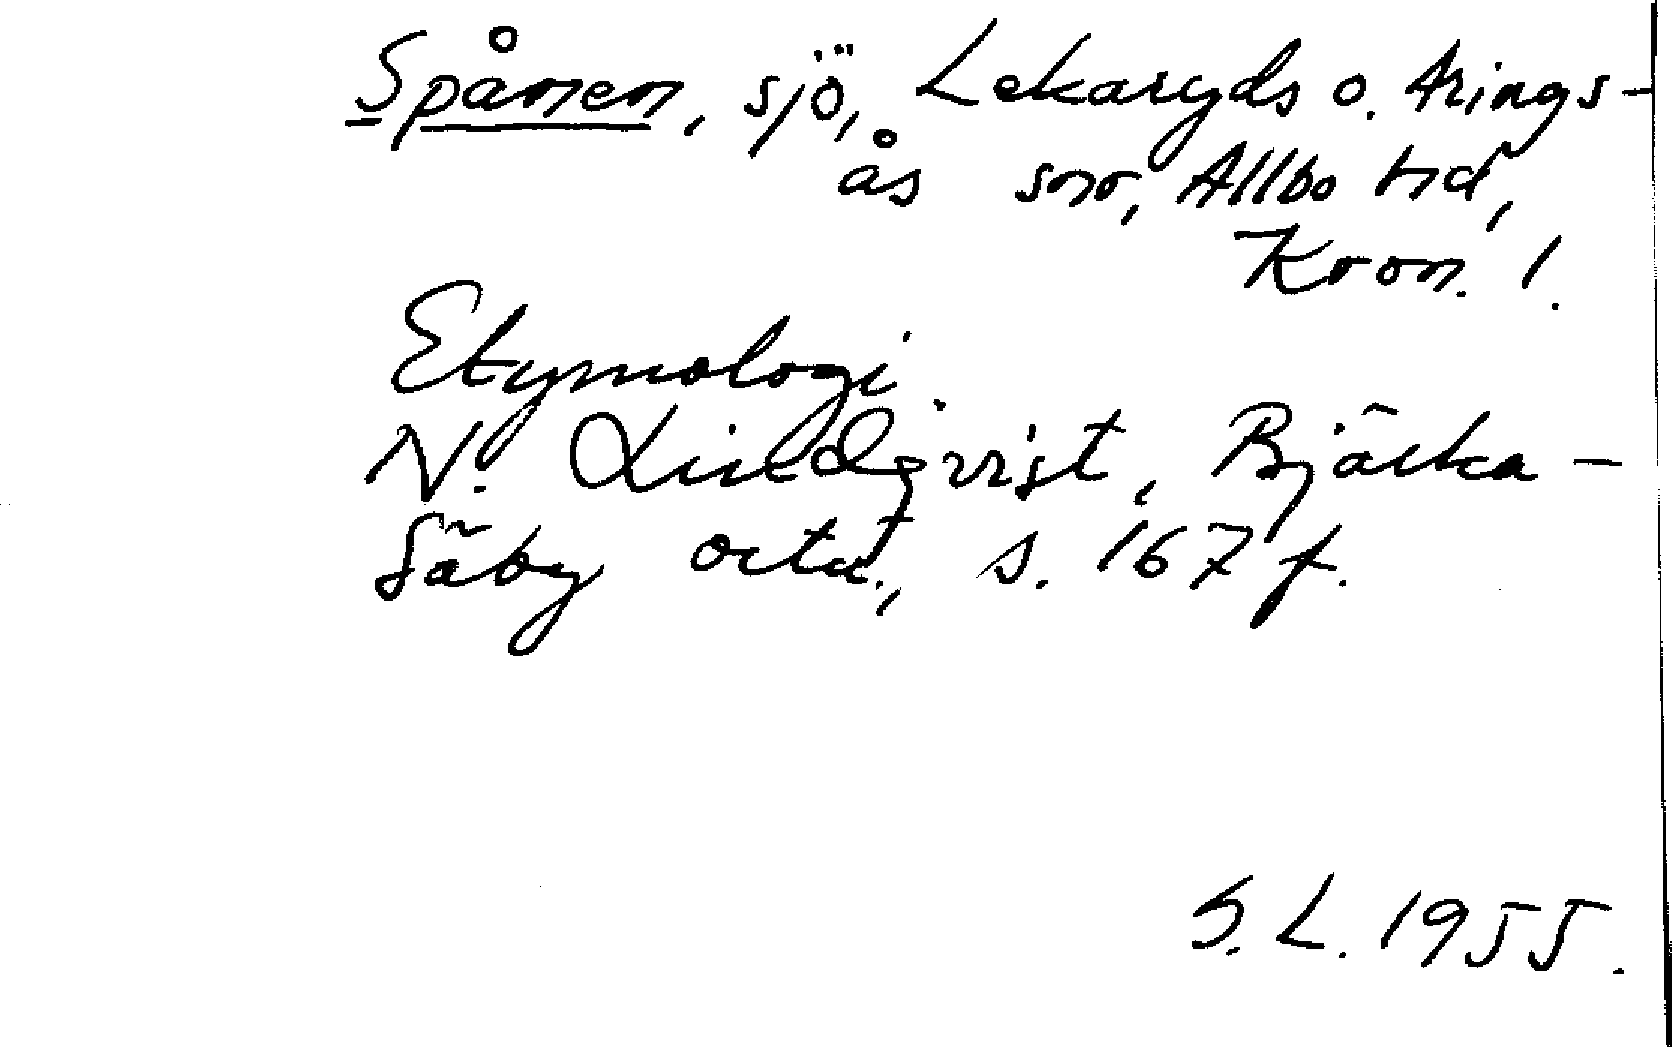 Spånen, sjö, Lekaryds o. Arings-
ås snr, Allbo hd,
Kron. l.
Etymologi.
N. Lindqvist, Bjärka-
Säby ortn., s. 167 f.
S. L. 1955.